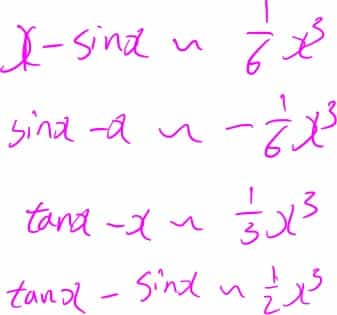 x - sinx ~ 1/6 x³
sinx - x ~ -1/6 x³
tanx - x ~ 1/3 x³
tanx - sinx ~ 1/2 x³